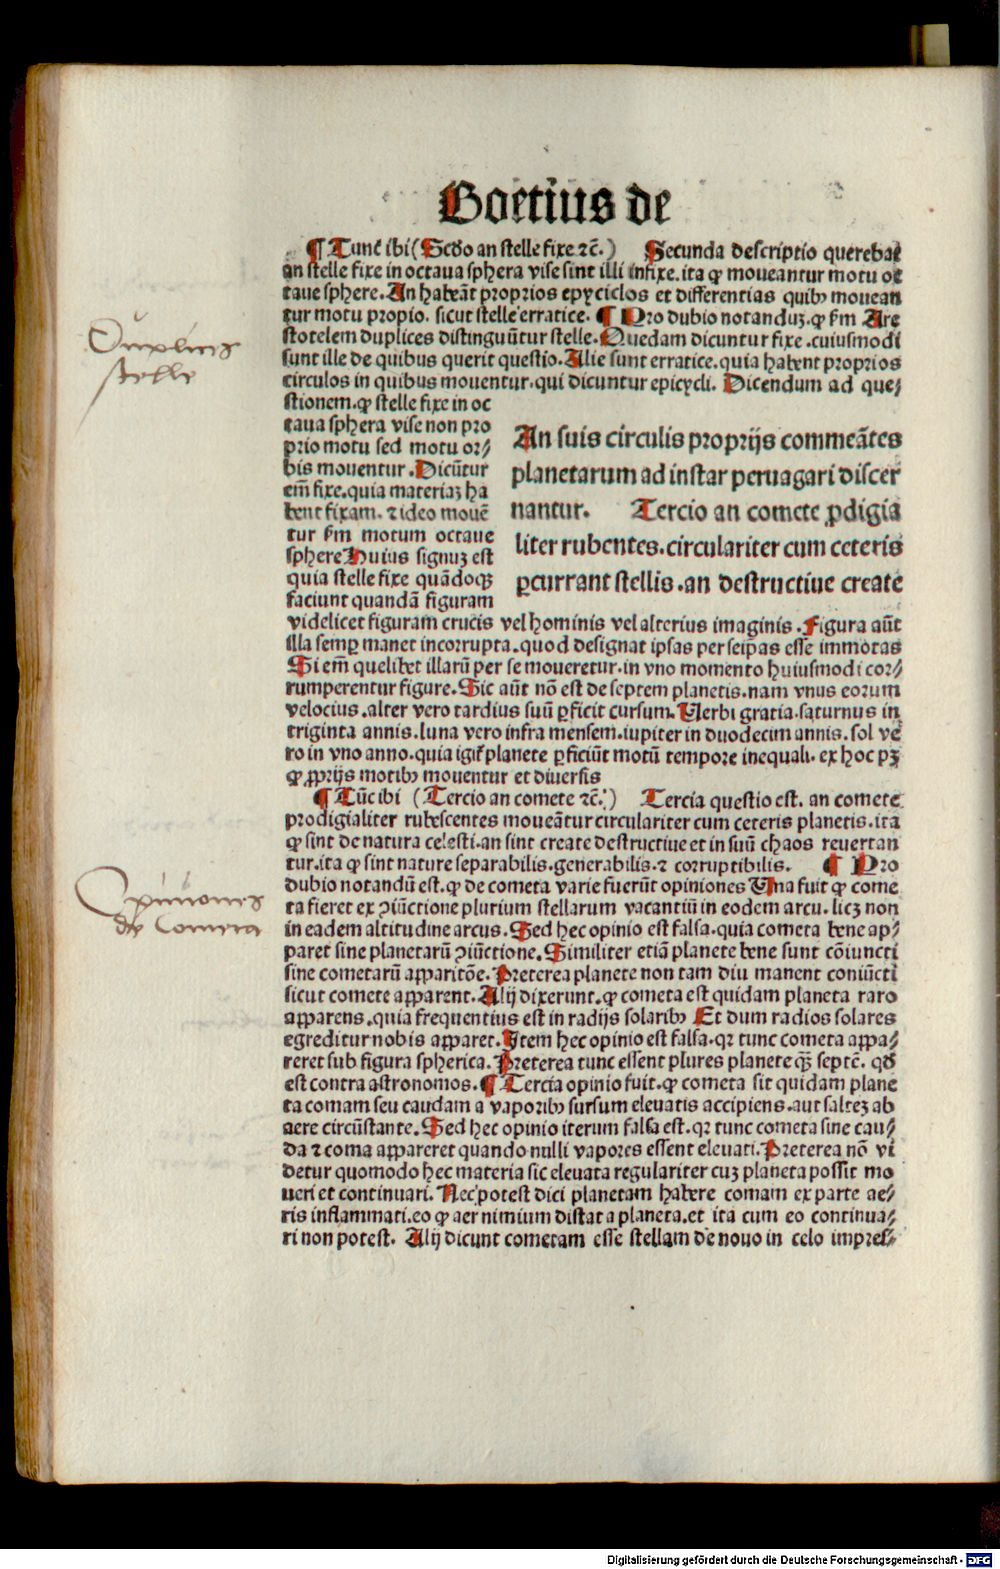 Boetius de
¶ Tunc̄ ibi (Scd̄o an stelle fixe ⁊c̄.) Secunda descriptio querebat
an stelle fixe in octaua sphera vise sint illi infixe. ita ꝙ moueantur motu oc
taue sphere. An habeāt proprios epyciclos et differentias quibꝰ mouean
tur motu propio. sicut stelle erratice. ¶ Pro dubio notanduꝫ. ꝙ ẜm Are
stotelem duplices distinguūtur stelle. Quedam dicuntur fixe. cuiusmodi
sunt ille de quibus querit questio. Alie sunt erratice. quia habent proprios
circulos in quibus mouentur. qui dicuntur epicycli. Dicendum ad que⸗
stionem. ꝙ stelle fixe in oc
taua sphera vise non pro
prio motu sed motu or⸗
bis mouentur. Dicūtur
em̄ fixe. quia materiaꝫ ha
bent fixam. ⁊ ideo mouē
tur ẜm motum octaue
sphere Huius signuꝫ est
quia stelle fixe quādoqꝫ
faciunt quandā figuram
An suis circulis proprijs commeātes
planetarum ad instar peruagari discer
nantur. Tercio an comete ꝓdigia
liter rubentes. circulariter cum ceteris
ꝑcurrant stellis. an destructiue create
videlicet figuram crucis vel hominis vel alterius imaginis. Figura aūt
illa semꝑ manet incorrupta. quod designat ipsas per seip̄as esse immotas
Si em̄ quelibet illarū per se moueretur. in vno momento huiusmodi cor⸗
rumperentur figure. Sic aūt nō est de septem planetis. nam vnus eorum
velocius. alter vero tardius suū ꝑficit cursum. Verbi gratia. saturnus in
triginta annis. luna vero infra mensem. iupiter in duodecim annis. sol ve
ro in vno anno. quia igit̄ planete ꝑficiūt motū tempore inequali. ex hoc pꝫ
ꝙ ꝓprijs motibꝰ mouentur et diuersis
¶ Tūc ibi (Tercio an comete ⁊c̄.) Tercia questio est. an comete
prodigialiter rubescentes moueātur circulariter cum ceteris planetis. ita
ꝙ sint de natura celesti. an sint create destructiue et in suū chaos reuertan
tur. ita ꝙ sint nature separabilis. generabilis. ⁊ corruptibilis. ¶ Pro
dubio notandū est. ꝙ de cometa varie fuerūt opiniones Una fuit ꝙ come
ta fieret ex ꝯiūctione plurium stellarum vacantiū in eodem arcu. licꝫ non
in eadem altitudine arcus. Sed hec opinio est falsa. quia cometa bene ap⸗
paret sine planetarū ꝯiūctione. Similiter etiā planete bene sunt cōiuncti
sine cometarū apparitōe. Preterea planete non tam diu manent coniūcti
sicut comete apparent. Alij dixerunt. ꝙ cometa est quidam planeta raro
apparens. quia frequentius est in radijs solaribꝰ Et dum radios solares
egreditur nobis apparet. Item hec opinio est falsa. qꝛ tunc cometa appa⸗
reret sub figura spherica. Preterea tunc essent plures planete qꝫ̄ septē. qd̄
est contra astronomos. ¶ Tercia opinio fuit. ꝙ cometa sit quidam plane
ta comam seu caudam a vaporibꝰ sursum eleuatis accipiens. aut salteꝫ ab
aere circūstante. Sed hec opinio iterum falsa est. qꝛ tunc cometa sine cau⸗
da ⁊ coma appareret quando nulli vapores essent eleuati. Preterea nō vi
detur quomodo hec materia sic eleuata regulariter cuꝫ planeta possit mo
ueri et continuari. Nec potest dici planetam habere comam ex parte ae⸗
ris inflammati. eo ꝙ aer nimium distat a planeta. et ita cum eo continua⸗
ri non potest. Alij dicunt cometam esse stellam de nouo in celo impres⸗
Duplices
stelle
Opiniones
de Cometa
Digitalisierung gefördert durch die Deutsche Forschungsgemeinschaft - DFG